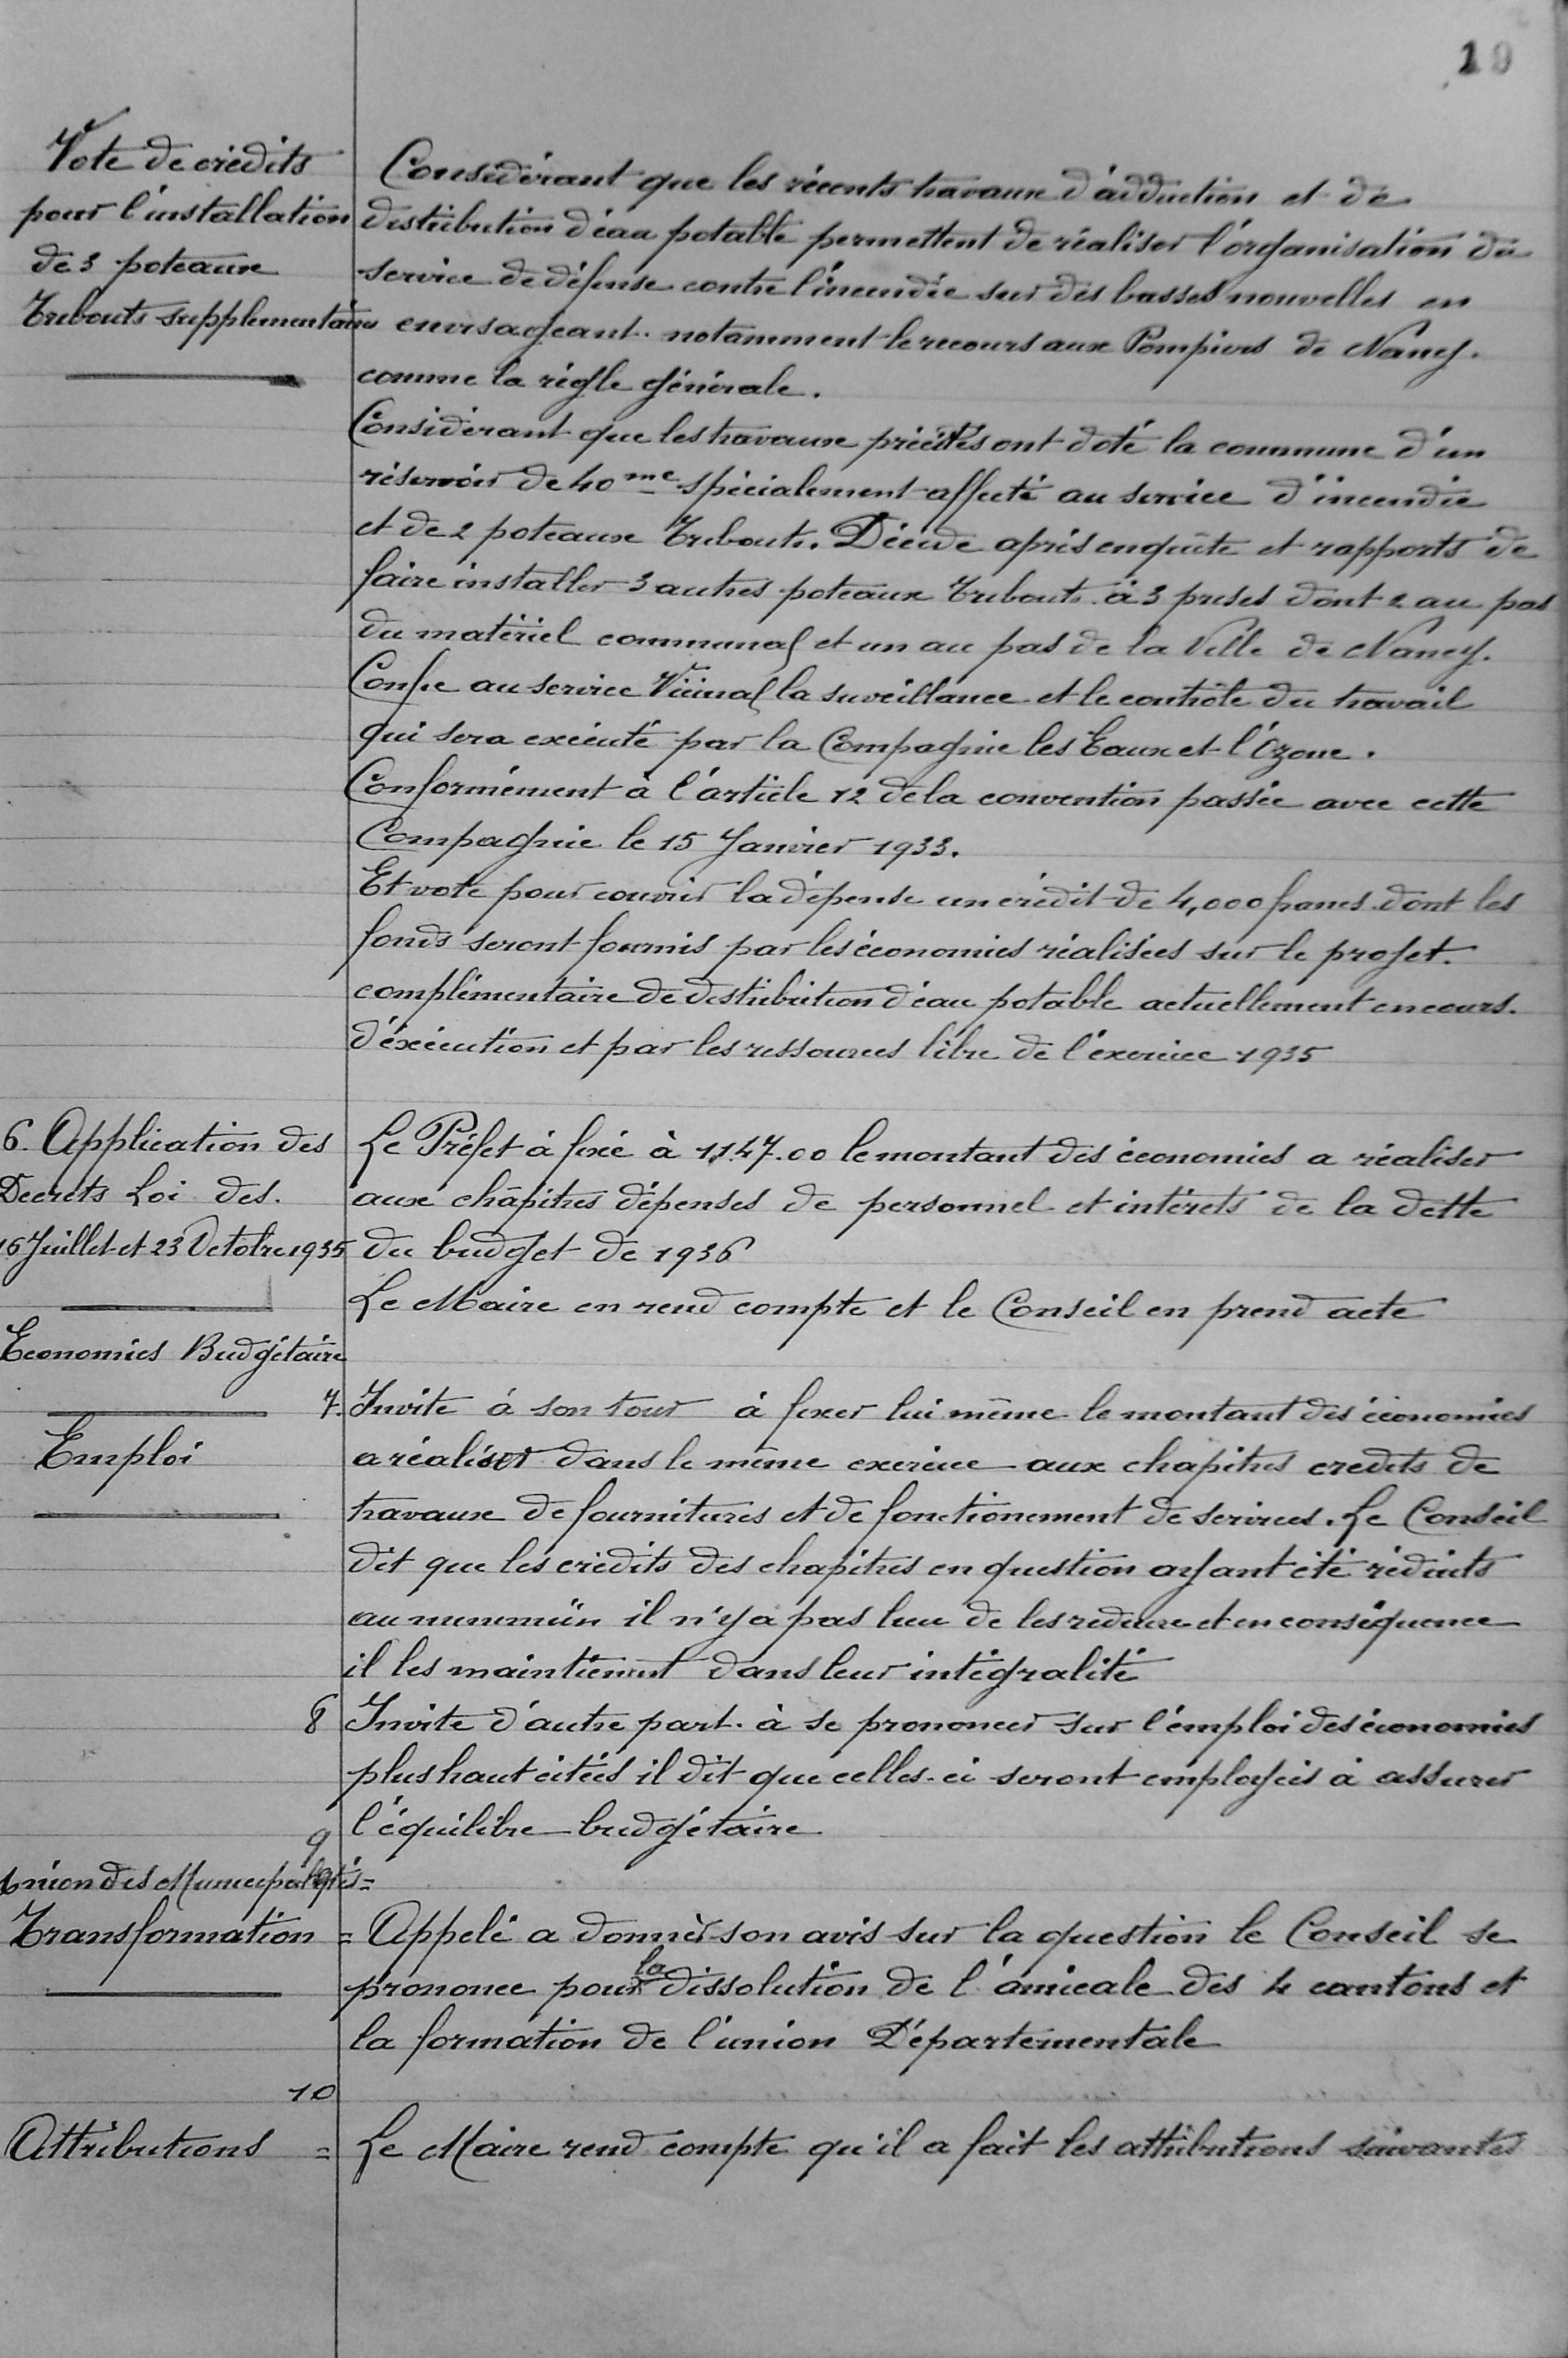 10
Vote de crédits
pour l'installation
de 3 poteaux
Tribouts supplementaires
Considérant que les récents travaux d'adduction et de
distribution d'éau potable permettent de réaliser l'organisation du
service de défense contre l'incendie sur des basses nouvelles en
envisageant. notamment le recours aux Pompiers de Nancy.
comme la régle générale.
Considérant que les travaux précités ont doté la commune d'un
réservoir de 40 mc spécialement affecté au service d'incendie
et de 2 poteaux Tribouts. Décide aprés enquête et rapports de
faire installer 3 autres poteaux Tribouts à 3 prises dont 2 au pas
du matériel communal et un au pas de la Ville de Nancy.
Confie au service Vicinal la suveillance et le contrôle du travail
qui sera exécuté par la Compagnie les Eaux et l'Ozone.
Conformément à l'article 12 de la convention passée avec cette
Compagnie le 15 Janvier 1933.
Et vote pour couvrir la dépense un crédit de 4,000 francs dont les
fonds seront fournis par les économies réalisées sur le projet.
complémentaire de distribution d'éau potable actuellement en cours.
d'éxécution et par les ressources libre de l'éxercice 1935
6. Application des
Decrets Loi des.
16 Juillet et 23 Octobre 1935
Economies Budgétaire
Le Préfet à fixé à 1147.00 le montant des économies a réaliser
aux châpitres dépenses de personnel et intérets de la dette
du budget de 1936
Le Maire en rend compte et le Conseil en prend acte
7.
Emploi
Invité à son tour à fixer lui même le montant des économies
a réaliser dans le même exercice aux chapitres credits de
travaux de fournitures et de fonctionement de services. Le Conseil
dit que les crédits des chapitres en question ayant été réduits
au minimum il n'y a pas lieu de les reduire et en conséquence
il les maintienent dans leur intégralité
8
Invité d'autre part. à se prononcer sur l'émploi des économies
plus haut citées il dit que celles-ci seront employées à assurer
l'équilibre budgétaire
9
Union des Municipalités =
Transformation =
Appelé a donner son avis sur la question le Conseil se
prononce pour la dissolution de l'amicale des 4 cantons et
la formation de l'union Départementale
10
Attributions =
Le Maire rend compte qu'il a fait les attributions suivantes